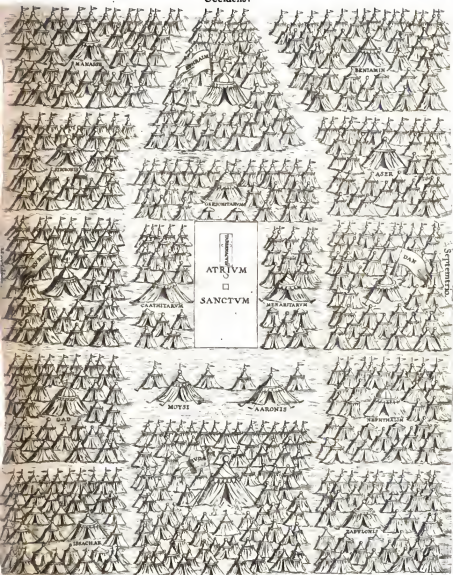 Occidens.
MANASSE
EPHRAIM
BENIAMIN
SIMEONIS
GERSONITARVM
ASER
CAATHITARVM
ATRIVM
SANCTVM
MERARITARVM
DAN
Septentrio.
GAD
MOYSI
AARONIS
NEPHTHALIM
ISSACHAR
ZABVLONIS